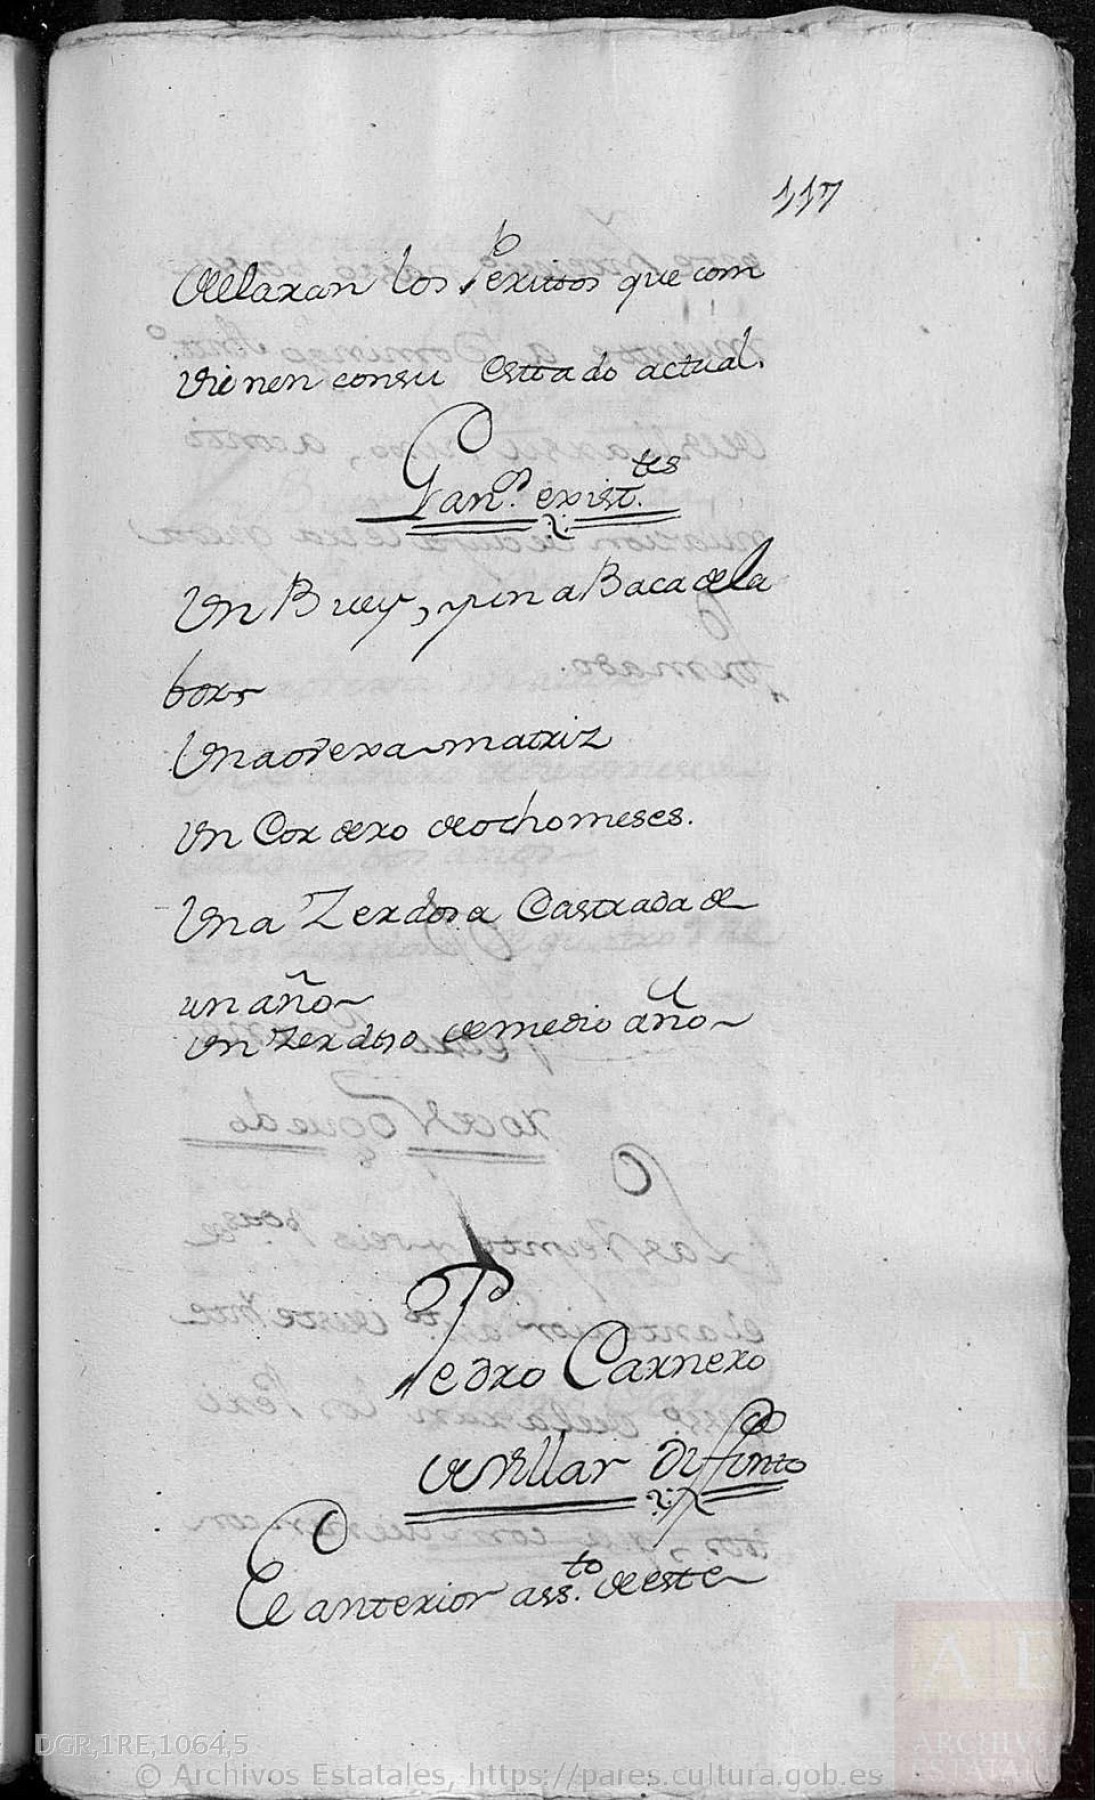 117
declaran los Perittos que com
vienen consu esttado actual.
Gan.º exist.tes
Un Buey, y una Baca dela
bor
Una ovexa matriz
Un Cordero de ocho meses.
Una Zerdosa Castrada de
un año
Un Zerdoso de medio año
Pedro Carnero
de Villar Difunto
El anterior ass.to de este
DGR,1RE,1064,5
© Archivos Estatales, https://pares.cultura.gob.es
A E
ARCHIVOS
ESTATALES